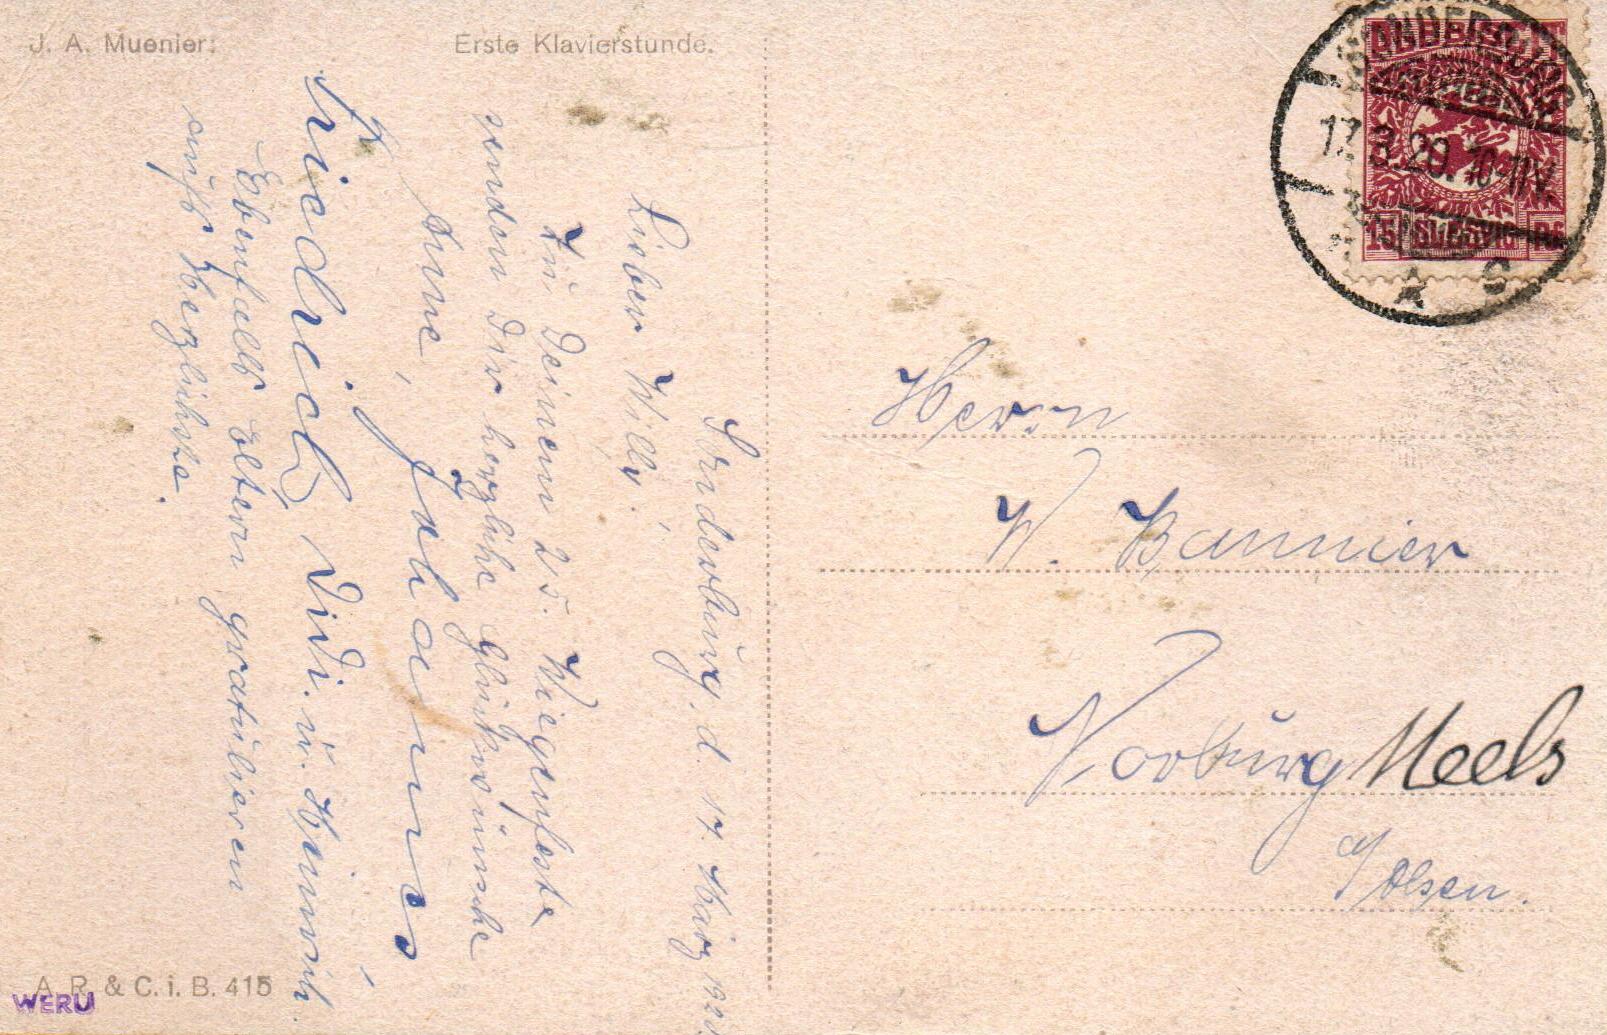 J. A. Muenier:
Erste Klavierstunde.
Sonderburg, d. 17. März 1920
Lieber Willy!
Zu Deinem 25. Wiegenfeste
senden Dir herzliche Glückwünsche
Anne, Johanne,
Friedrich, Didi. u. Heinrich.
Ebenfalls Eltern gratulieren
aufs Herzlichste.
A. R. & C. i. B. 415
WERU
SONDERBURG
17.3.20. 10-11V.
15 SLESVIG PF
Herrn
W. Bannier
Norburg Meels
a/Alsen.